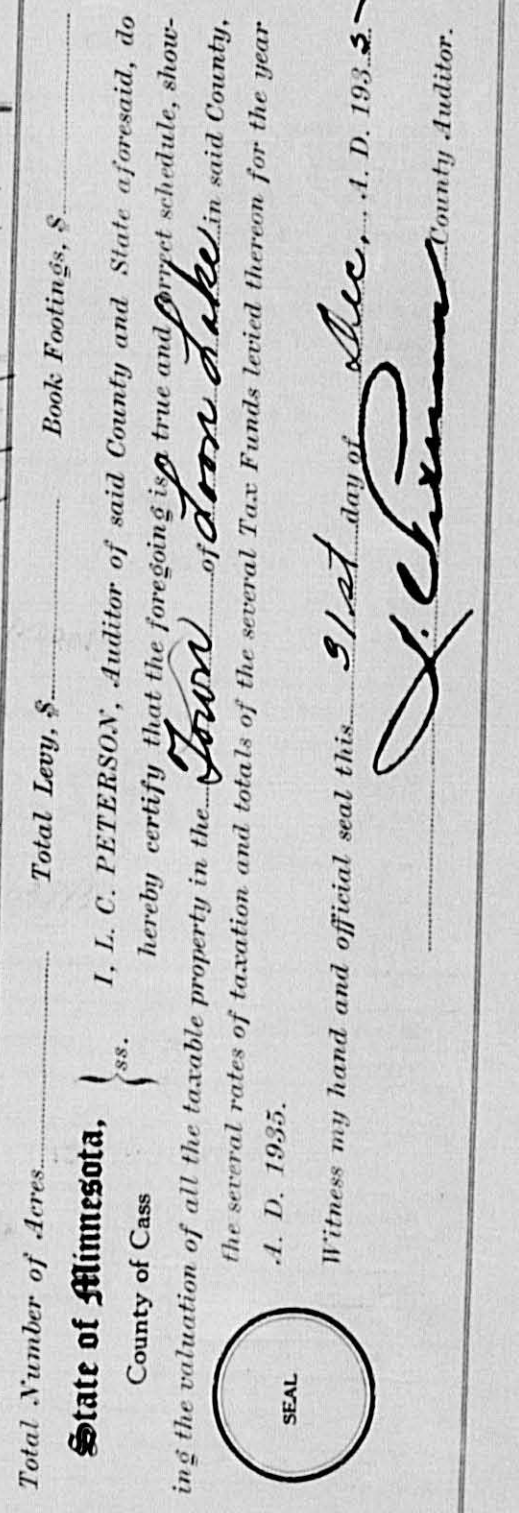 Total Number of Acres Total Levy, $ Book Footings, $
State of Minnesota, } ss. I, L. C. PETERSON, Auditor of said County and State aforesaid, do
County of Cass hereby certify that the foregoing is a true and correct schedule, show-
ing the valuation of all the taxable property in the Town of Loon Lake in said County,
the several rates of taxation and totals of the several Tax Funds levied thereon for the year
A. D. 1935.
Witness my hand and official seal this 31st day of Dec, A. D. 1935
SEAL
County Auditor.